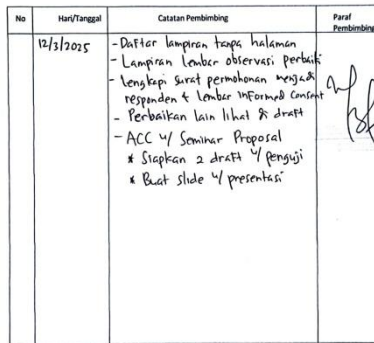 No Hari/Tanggal Catatan Pembimbing Paraf Pembimbing
12/3/2025 - Daftar lampiran tanpa halaman
- Lampiran lembar observasi perbaiki
- Lengkapi surat permohonan menjadi
responden & lembar informed consent
- Perbaikan lain lihat di draft
- ACC u/ Seminar Proposal
* Siapkan 2 draft u/ penguji
* Buat slide u/ presentasi